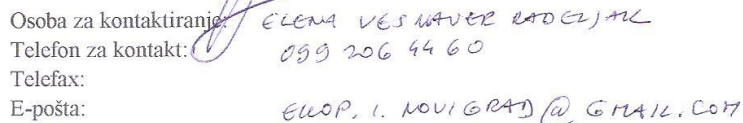 Osoba za kontaktiranje: ELENA VESNAVER RADELJAK
Telefon za kontakt: 099 206 44 60
Telefax:
E-pošta: EKOP.I.NOVIGRAD@GMAIL.COM